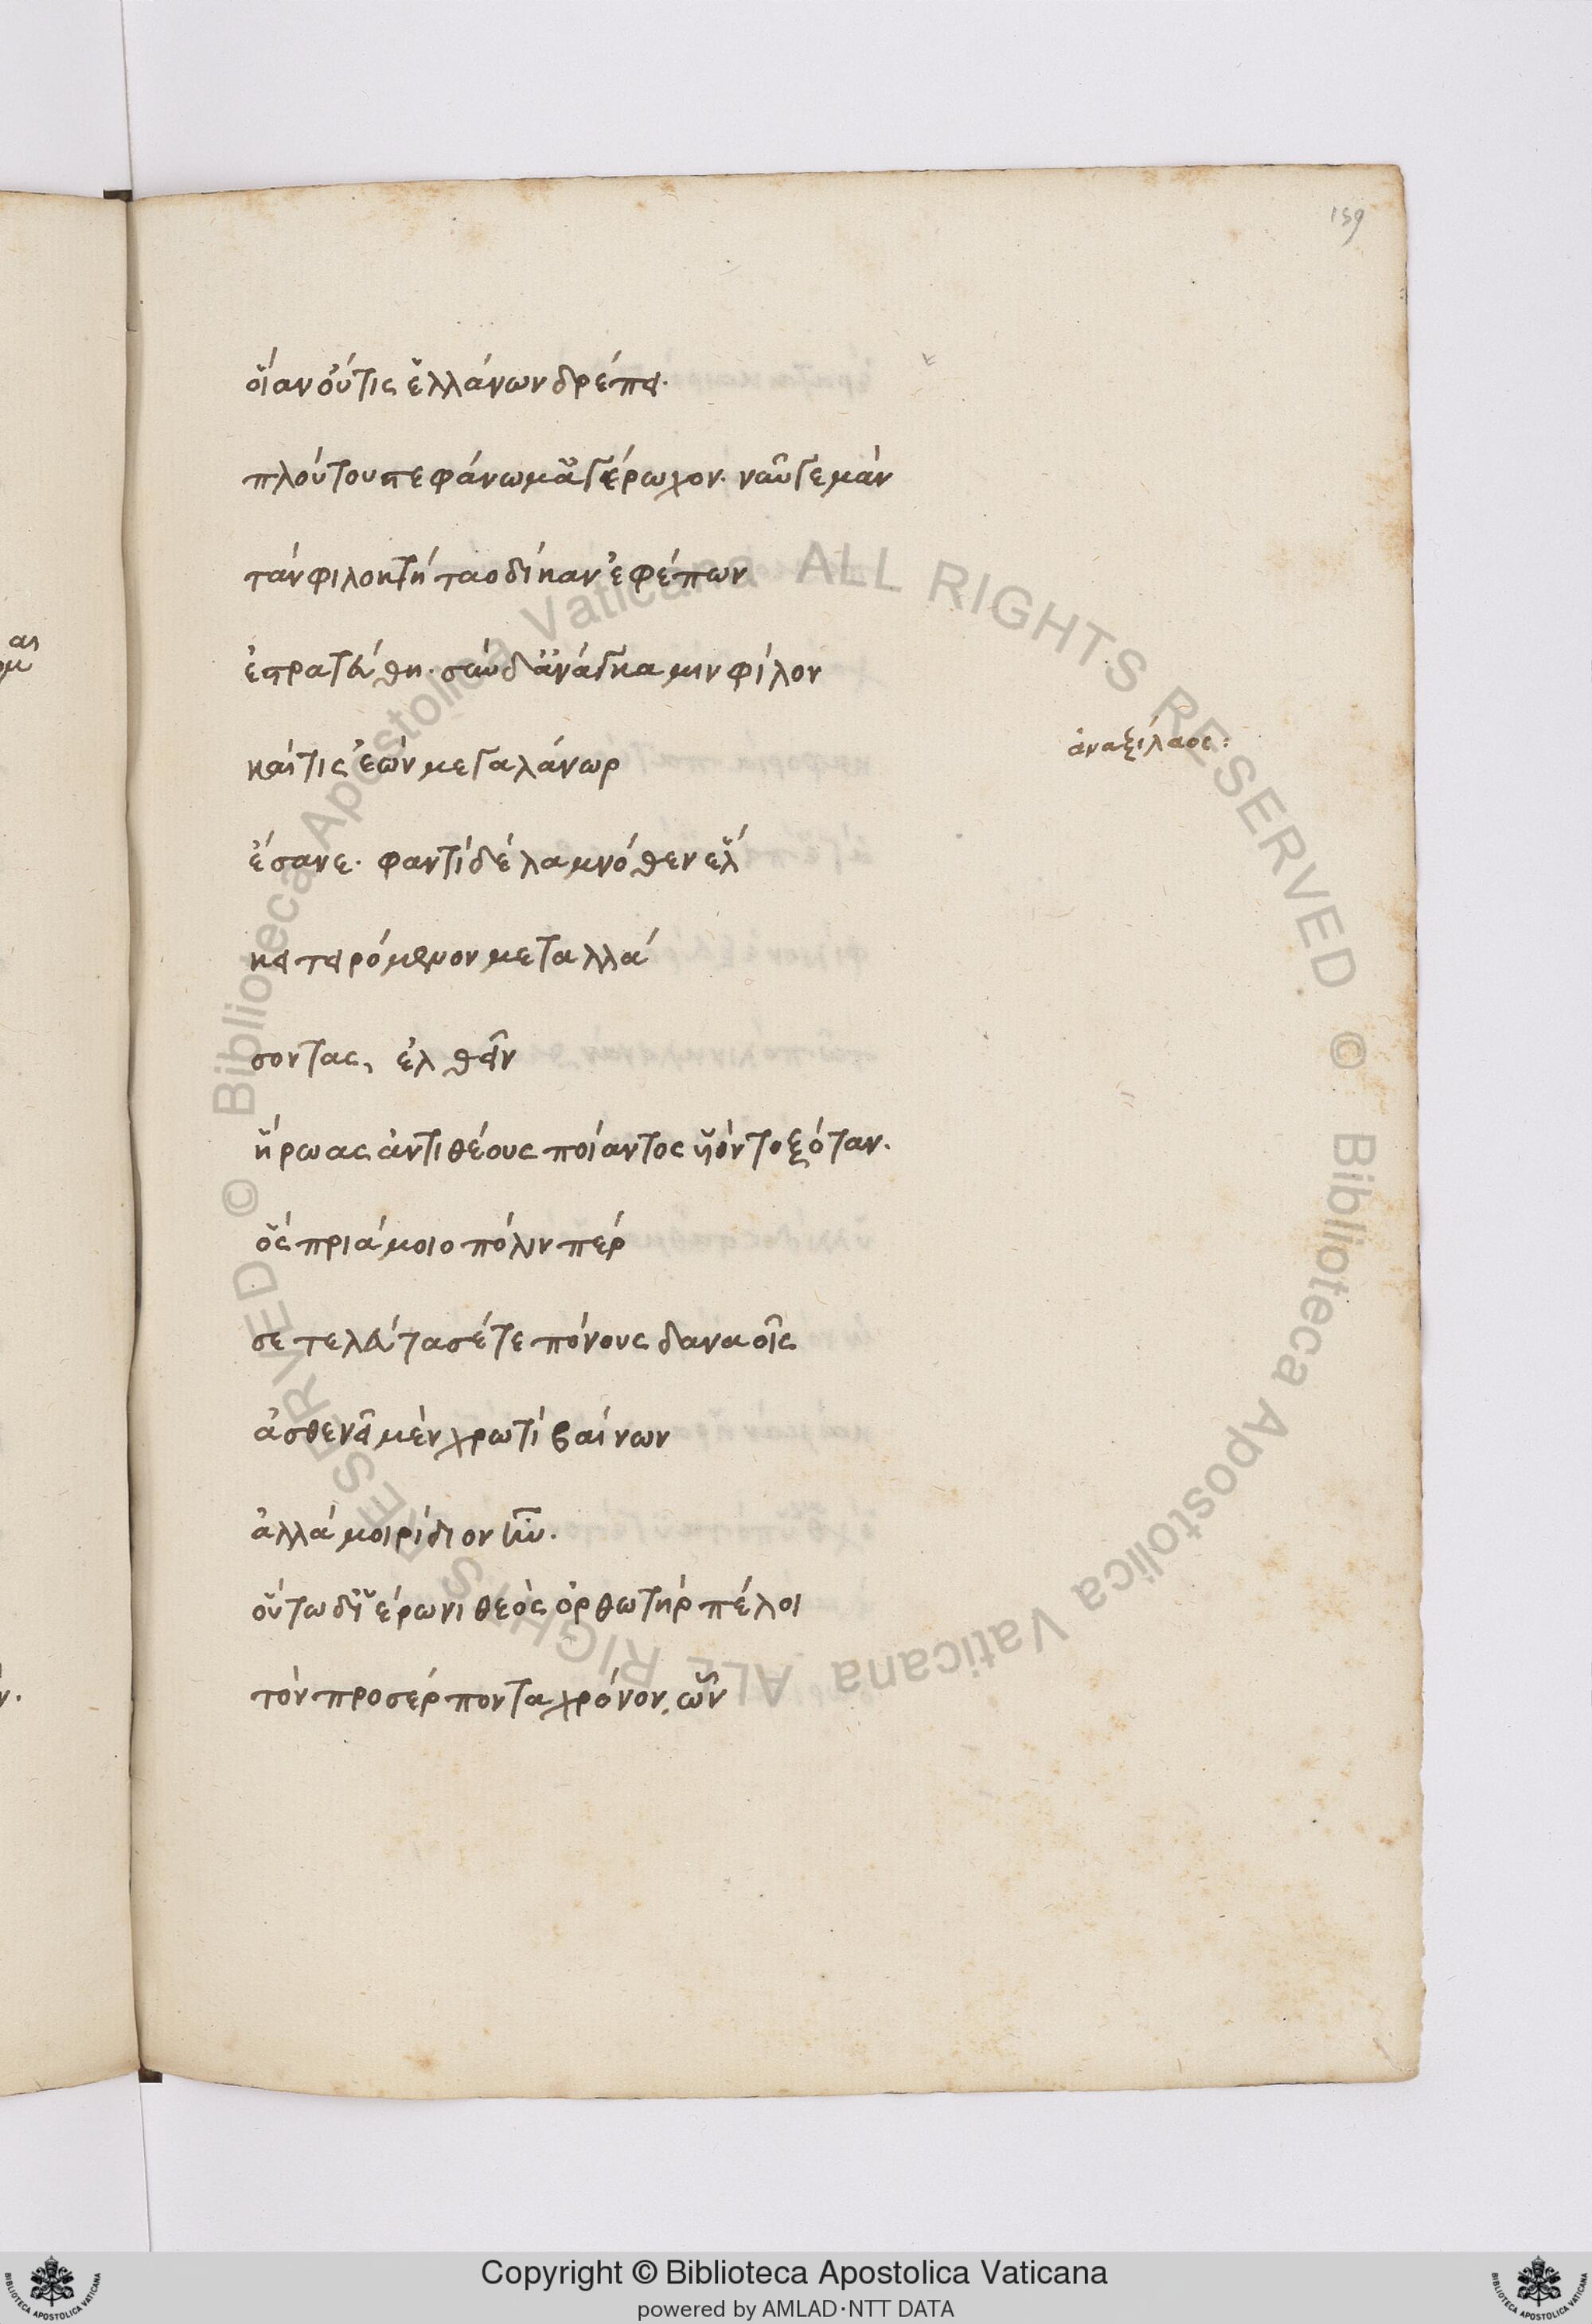 159
οἵαν οὔτις ἑλλάνων δρέπει.
πλούτου στεφάνωμ' ἀγέρωχον. νῦν γε μὰν
τὰν φιλοκτήταο δίκαν ἐφέπων
ἐστρατεύθη. σὺν δ' ἀνάγκα μιν φίλον
καί τις ἐὼν μεγαλάνωρ
ἀναξίλαος:
ἔσανε. φαντὶ δὲ λαμνόθεν ἕλ
κει τειρόμενον μεταλλά
σοντας, ἐλθεῖν
ἥρωας ἀντιθέους ποίαντος υἱὸν τοξόταν.
ὃς πριάμοιο πόλιν πέρ
σε τελεύτασέ τε πόνους δαναοῖς
ἀσθενεῖ μὲν χρωτὶ βαίνων
ἀλλὰ μοιρίδιον ἦν.
οὕτω δ' ἱέρωνι θεὸς ὀρθωτὴρ πέλοι
τὸν προσέρποντα χρόνον, ὧν
αι
μ
ν.
© Biblioteca Apostolica Vaticana ALL RIGHTS RESERVED © Biblioteca Apostolica Vaticana ALL RIGHTS RESERVED
Copyright © Biblioteca Apostolica Vaticana
powered by AMLAD·NTT DATA
BIBLIOTECA APOSTOLICA VATICANA
BIBLIOTECA APOSTOLICA VATICANA